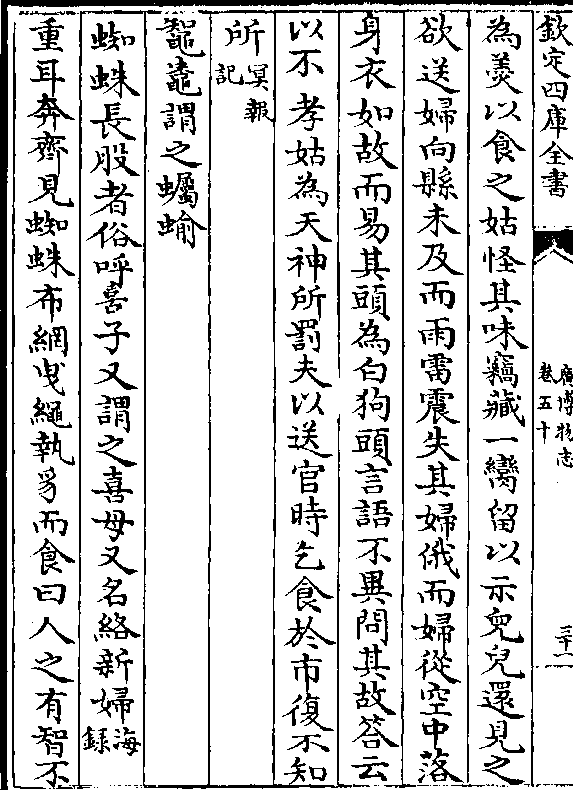 欽定四庫全書
廣博物志
卷五十
三十一
為羮以食之姑怪其味竊藏一臠留以示兒兒還見之
欲送婦向縣未及而雨雷震失其婦俄而婦從空中落
身衣如故而易其頭為白狗頭言語不異問其故答云
以不孝姑為天神所罰夫以送官時乞食於市復不知
所冥報記
鼅鼄謂之蠾蝓
蜘蛛長股者俗呼喜子又謂之喜母又名絡新婦海録
重耳奔齊見蜘蛛布網曵繩執豸而食曰人之有智不